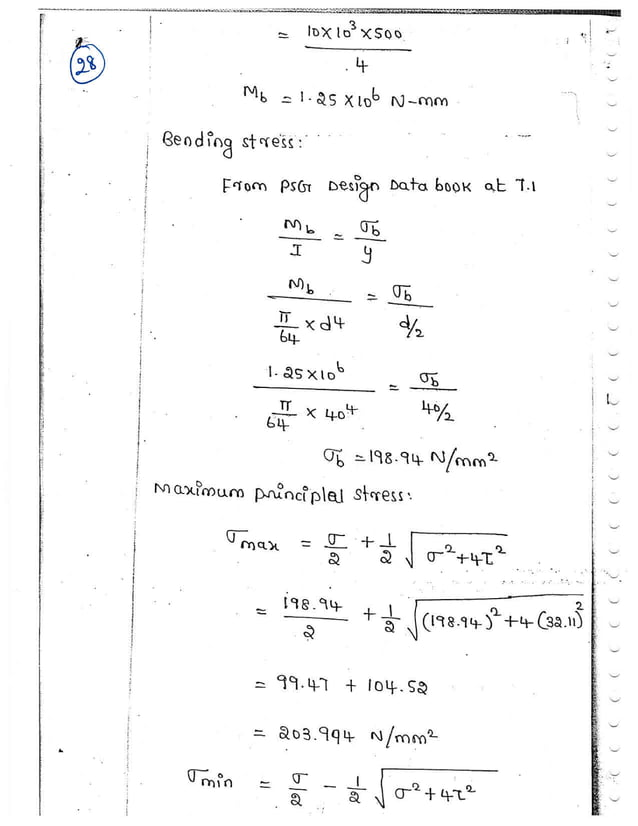 28
= 10×10³×500 / 4
M_b = 1.25 ×10⁶ N-mm
Bending stress:
From PSG Design Data book at 7.1
M_b / I = σ_b / y
M_b / (π/64 × d4) = σ_b / (d/2)
1.25×10⁶ / (π/64 × 40⁴) = σ_b / (40/2)
σ_b = 198.94 N/mm²
Maximum principlal stress:
σ_max = σ/2 + 1/2 √(σ²+4τ²)
= 198.94/2 + 1/2 √((198.94)²+4(32.11)²)
= 99.47 + 104.52
= 203.994 N/mm²
σ_min = σ/2 - 1/2 √(σ²+4τ²)